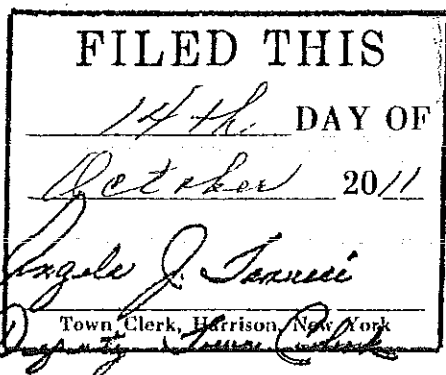 FILED THIS
14th. DAY OF
October 2011
Angelo J.
Town Clerk, Harrison, New York
Deputy Town Clerk